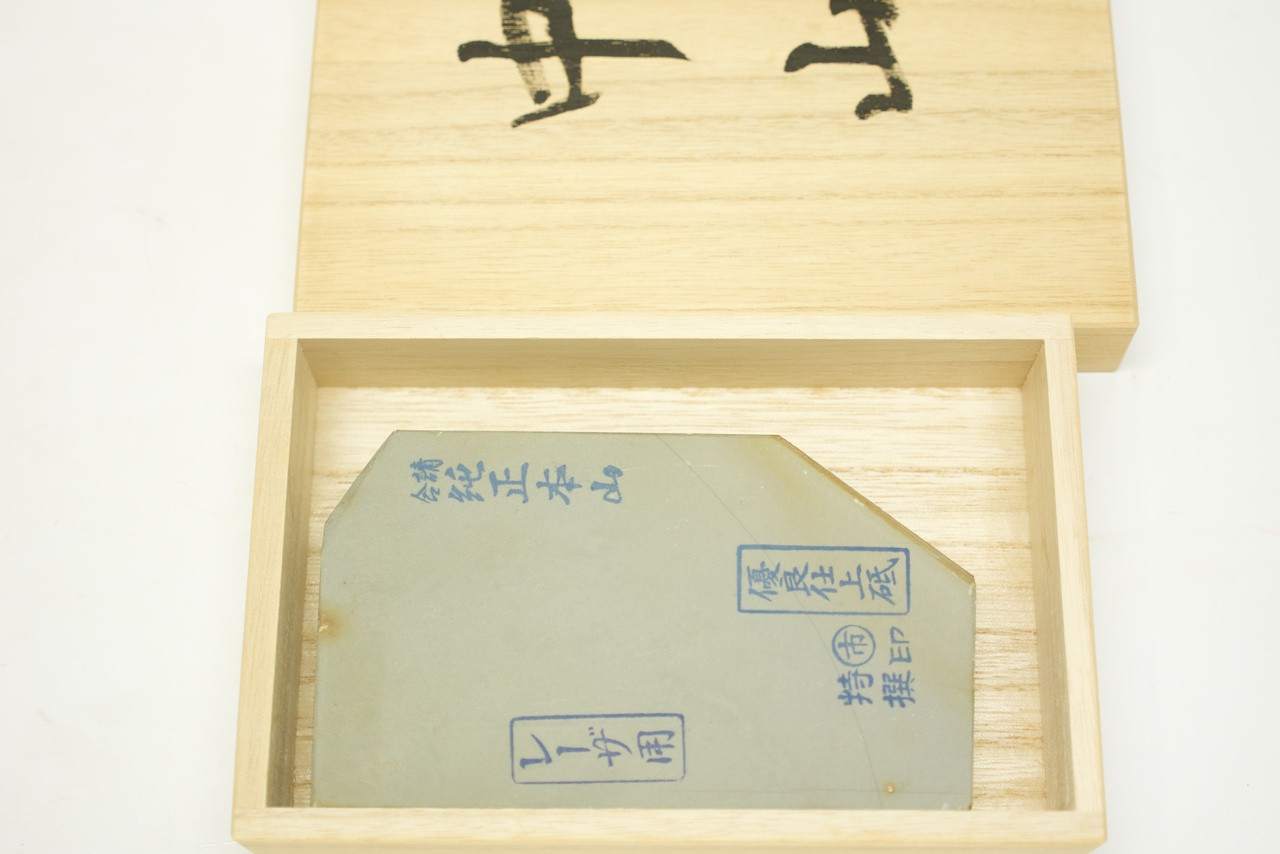 請合純正本山
優良仕上砥
市印
特撰
レーザ用